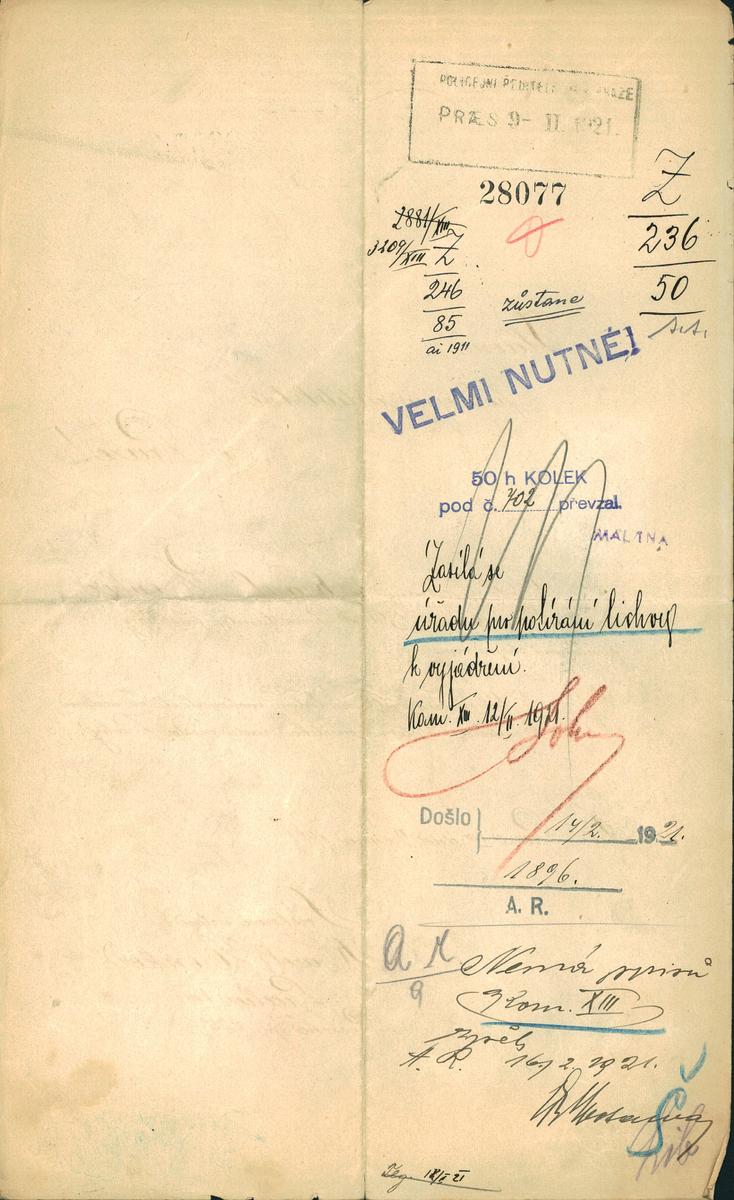 POLICEJNÍ ŘEDITELSTVÍ V PRAZE
PRÆS 9- II. 1921.
28077
Z
236
50
2881/XIII
3209/XIII Z
246
85
ai 1911
zůstane
VELMI NUTNÉ!
50 h KOLEK
pod č. 702 převzal
MALINA
Zasílá se
úřadu pro potírání lichvy
k vyjádření.
Kom. XIII. 12/II 1921.
Došlo 14/2. 1921.
1896.
A. R.
A R
9
Nemá spisů
Kom. XIII
zpět
A. R. 16/2. 1921.
Š